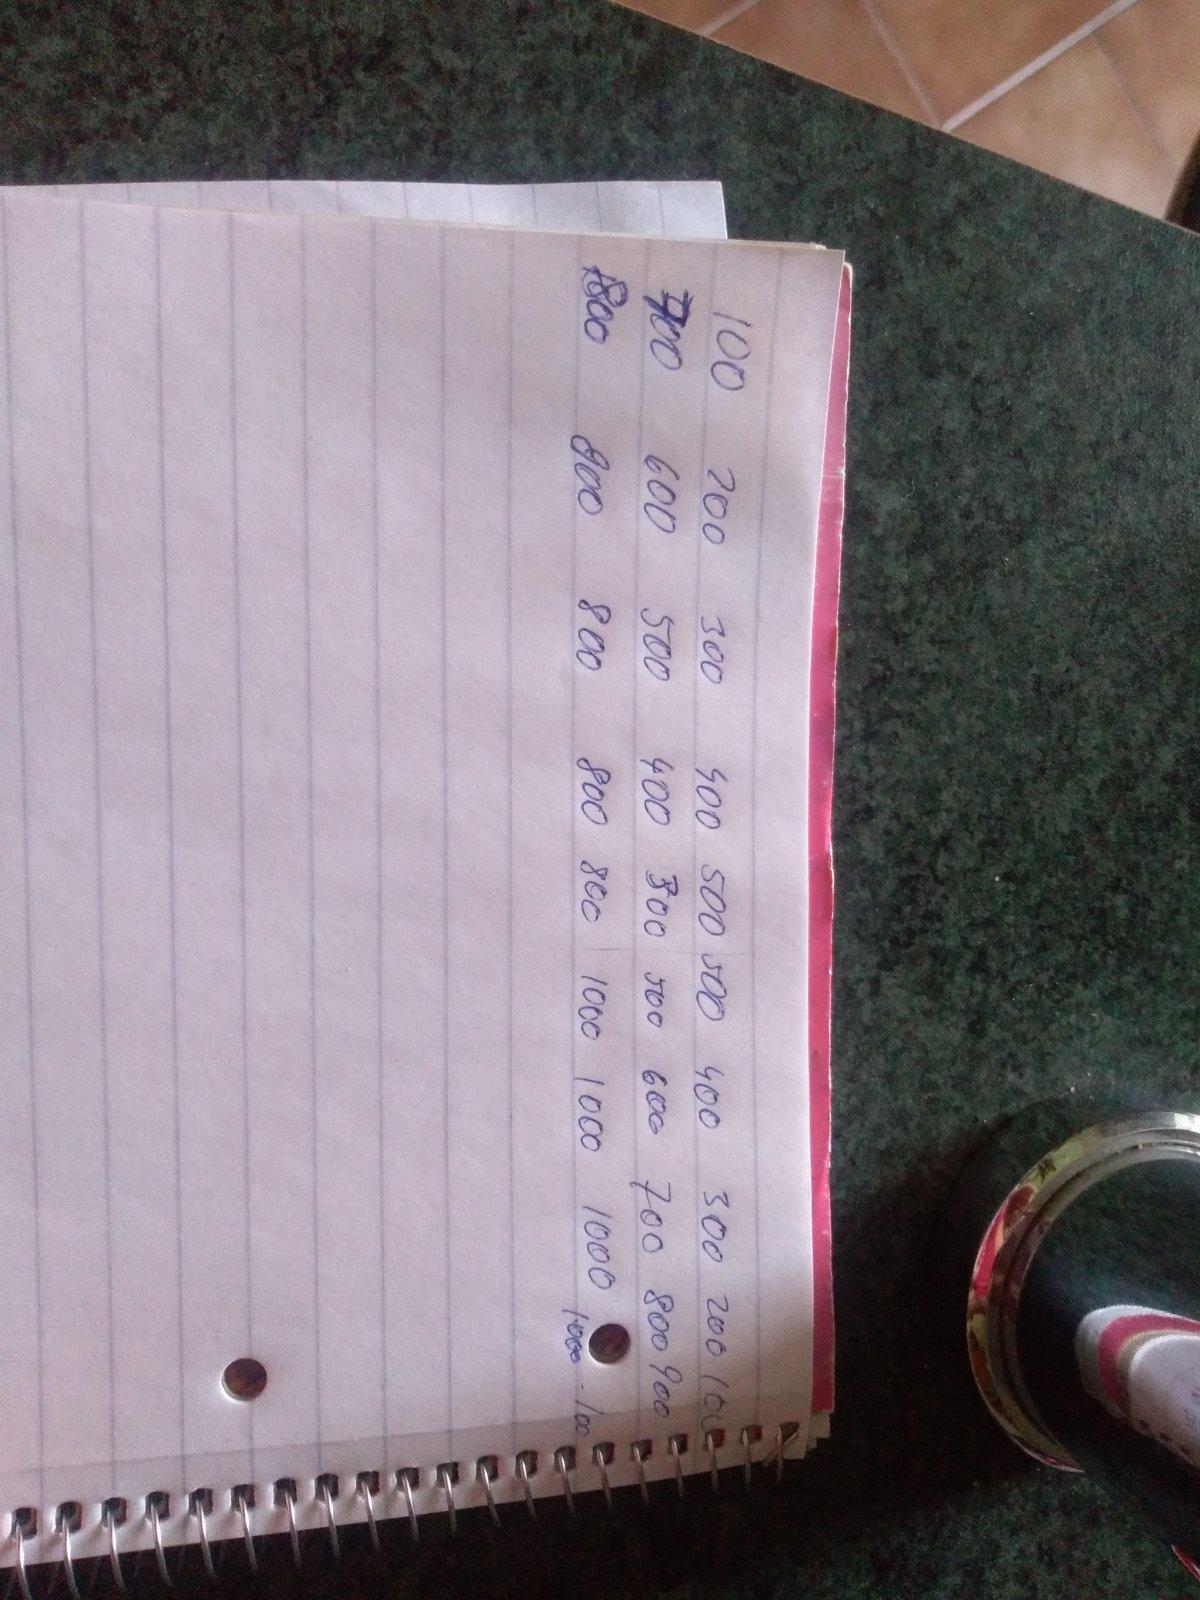 100 200 300 400 500 500 400 300 200 100
700 600 500 400 300 500 600 700 800 900
800 800 800 800 800 1000 1000 1000 1000 - 100